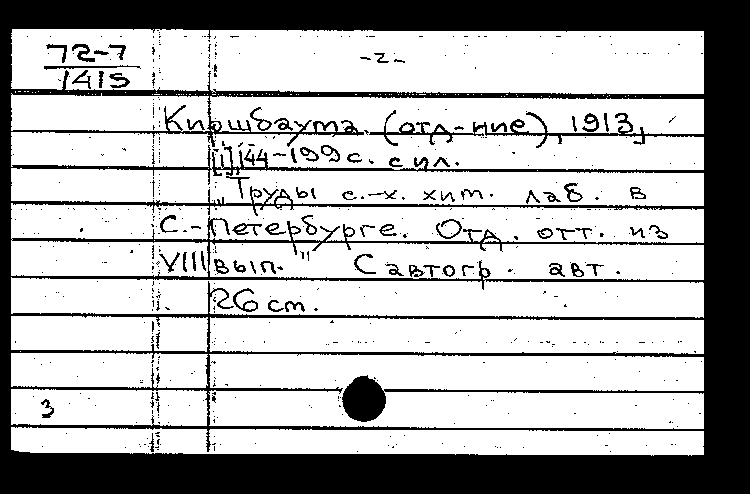 72-7
1415
-2-
Киршбаума (отд-ние), 1913]
[1], 144-199 с. с ил.
"Труды с.-х. хим. лаб. в
С.-Петербурге. Отд. отт. из
VIII вып." С автогр. авт.
26 cm.
3